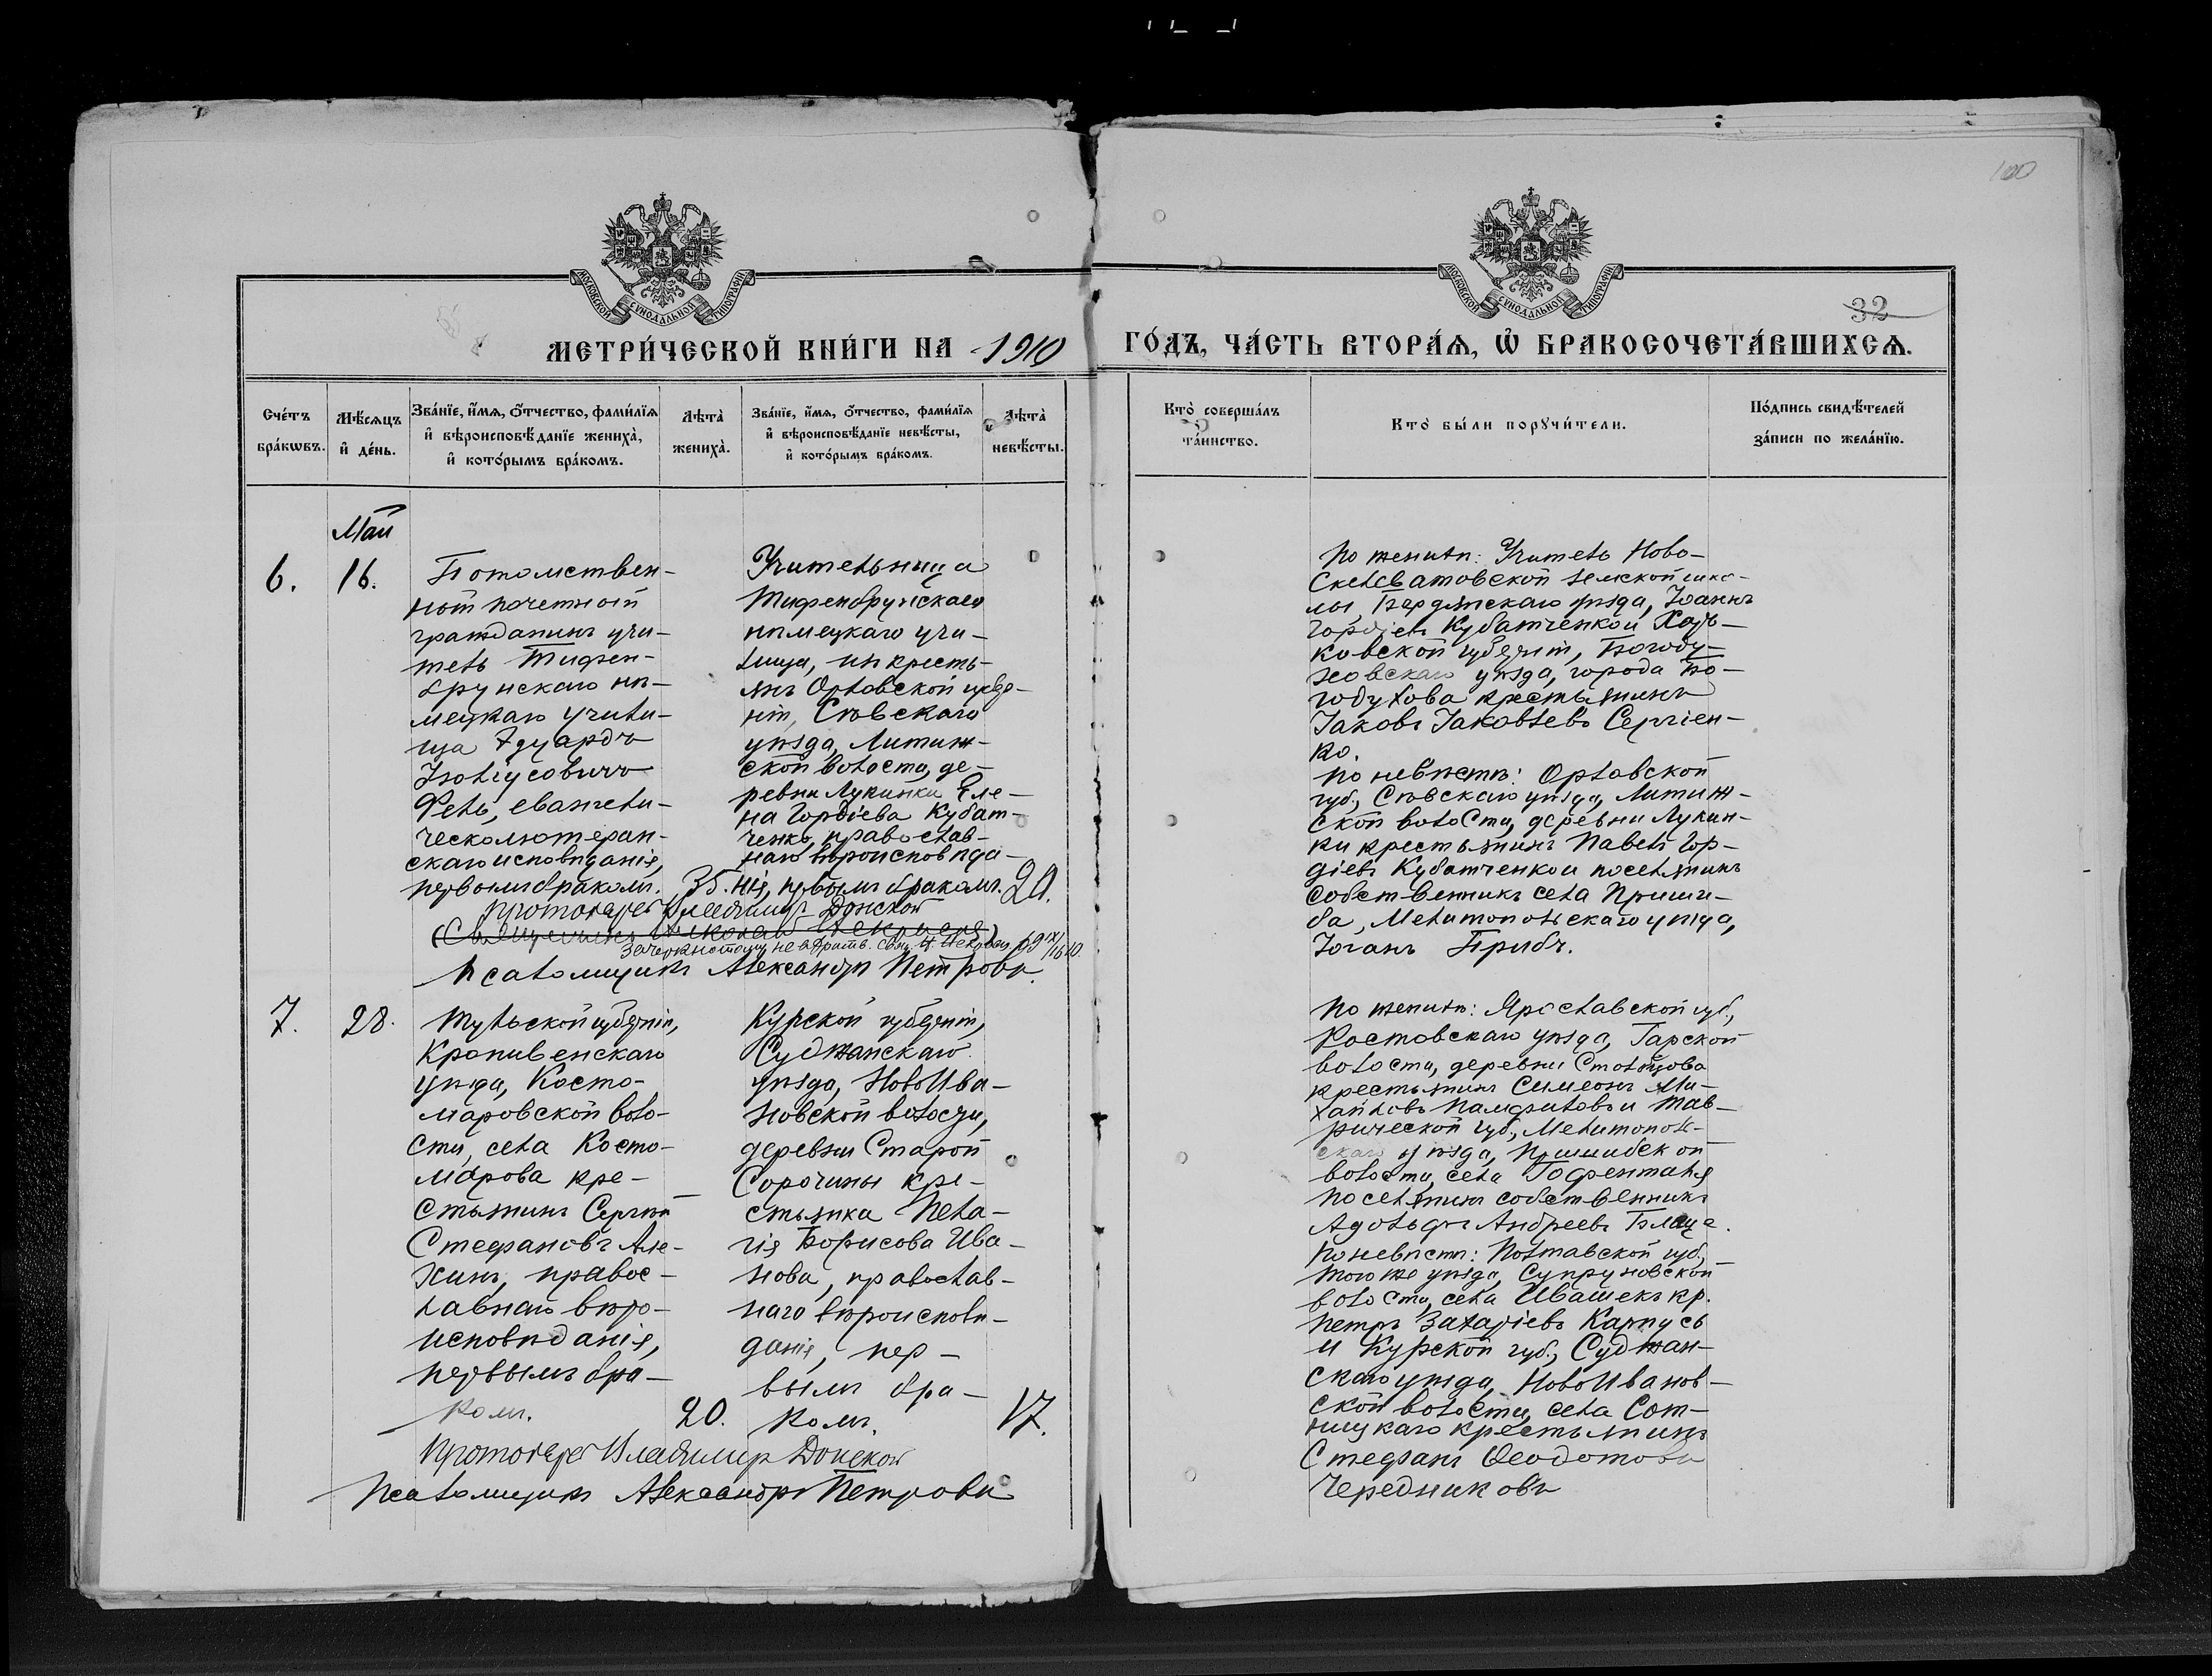 100
МОСКОВСКОЙ СѴНОДАЛЬНОЙ ТИПОГРАФІИ
МОСКОВСКОЙ СѴНОДАЛЬНОЙ ТИПОГРАФІИ
32
МЕТРИ́ЧЕСКОЙ КНИ́ГИ НА 1910 ГО́ДЪ, ЧА́СТЬ ВТОРА́Ѧ, Ѽ БРАКОСОЧЕТА́ВШИХСѦ.
Сче́тъ бра́кѡвъ.
Мѣ́сѧцъ и҆ де́нь.
Зва́нїе, и҆́мѧ, ѻ҆́тчество, фами́лїѧ и҆ вѣроисповѣ́данїе жениха̀, и҆ кото́рымъ бра́комъ.
Лѣ́та жениха̀.
Зва́нїе, и҆́мѧ, ѻ҆́тчество, фами́лїѧ и҆ вѣроисповѣ́данїе невѣ́сты, и҆ кото́рымъ бра́комъ.
Лѣ́та невѣ́сты.
Кто̀ соверша́лъ та́инство.
Кто̀ бы́ли порꙋчи́тели.
По́дпись свидѣ́телей за́писи по жела́нїю.
Май
6.
16.
Потомствен-
ный почетный
гражданинъ учи-
тель Тифен-
брунскаго нѣ-
мецкаго учили-
ща Эдуардъ
Фель, евангели-
ческолютеран-
скаго исповѣданія,
первымъ бракомъ.
35.
Учительница
Тифенбрунскаго
нѣмецкаго учи-
лища, изъ кресть-
янъ Орловской губер-
ніи, Сѣвскаго
уѣзда, Литиж-
ской волости, де-
ревни Лукинки Еле-
на Гордіева Кубат-
ченко, православ-
наго вѣроисповѣда-
нія, первымъ бракомъ.
20.
Протоіерей Владимир Донской
(Священникъ Николай)
Зачеркнутому не вѣрить. Свящ. Н.
Псаломщикъ Александръ Петровъ.
По женихѣ: Учитель Ново-
земской шко-
лы, Бердянскаго уѣзда, Іоаннъ
Гордіевъ Кубатченко и Харь-
ковской губерніи, Богоду-
ховскаго уѣзда, города Бо-
годухова крестьянинъ
Іаковъ Іаковлевъ Сергіен-
ко.
По невѣстѣ: Орловской
губ., Сѣвскаго уѣзда, Литиж-
ской волости, деревни Лукин-
ки крестьянинъ Павелъ Гор-
діевъ Кубатченко и поселянинъ
собственникъ села Приши-
ба, Мелитопольскаго уѣзда,
Іоганъ Прибъ.
7.
28.
Тульской губерніи,
Крапивенскаго
уѣзда, Косто-
маровской воло-
сти, села Косто-
марова кре-
стьянинъ Сергѣй
Стефановъ Але-
хинъ, правос-
лавнаго вѣро-
исповѣданія,
первымъ бра-
комъ.
20.
Курской губерніи,
Суджанскаго
уѣзда, НовоИва-
новской волости,
деревни Старой
Сорочины кре-
стьянка Пела-
гія Борисова Ива-
нова, православ-
наго вѣроисповѣ-
данія, пер-
вымъ бра-
комъ.
17.
Протоіерей Владимир Донской
Псаломщикъ Александръ Петровъ
По женихѣ: Ярославской губ.,
Ростовскаго уѣзда, Гарской
волости, деревни
крестьянинъ Симеонъ Ми-
хайловъ Памфиловъ и Тав-
рической губ., Мелитополь-
скаго уѣзда, Пришибской
волости, села Гофенталя
поселянинъ собственникъ
Адольфъ Андреевъ
По невѣстѣ: Полтавской губ.,
того же уѣзда, Супруновской
волости, села Ивашекъ кр.
Петръ Захаріевъ Карпусь
и Курской губ., Суджан-
скаго уѣзда, НовоИванов-
ской волости, села Сот-
ницкаго крестьянинъ
Стефанъ Ѳеодотовъ
Чередниковъ